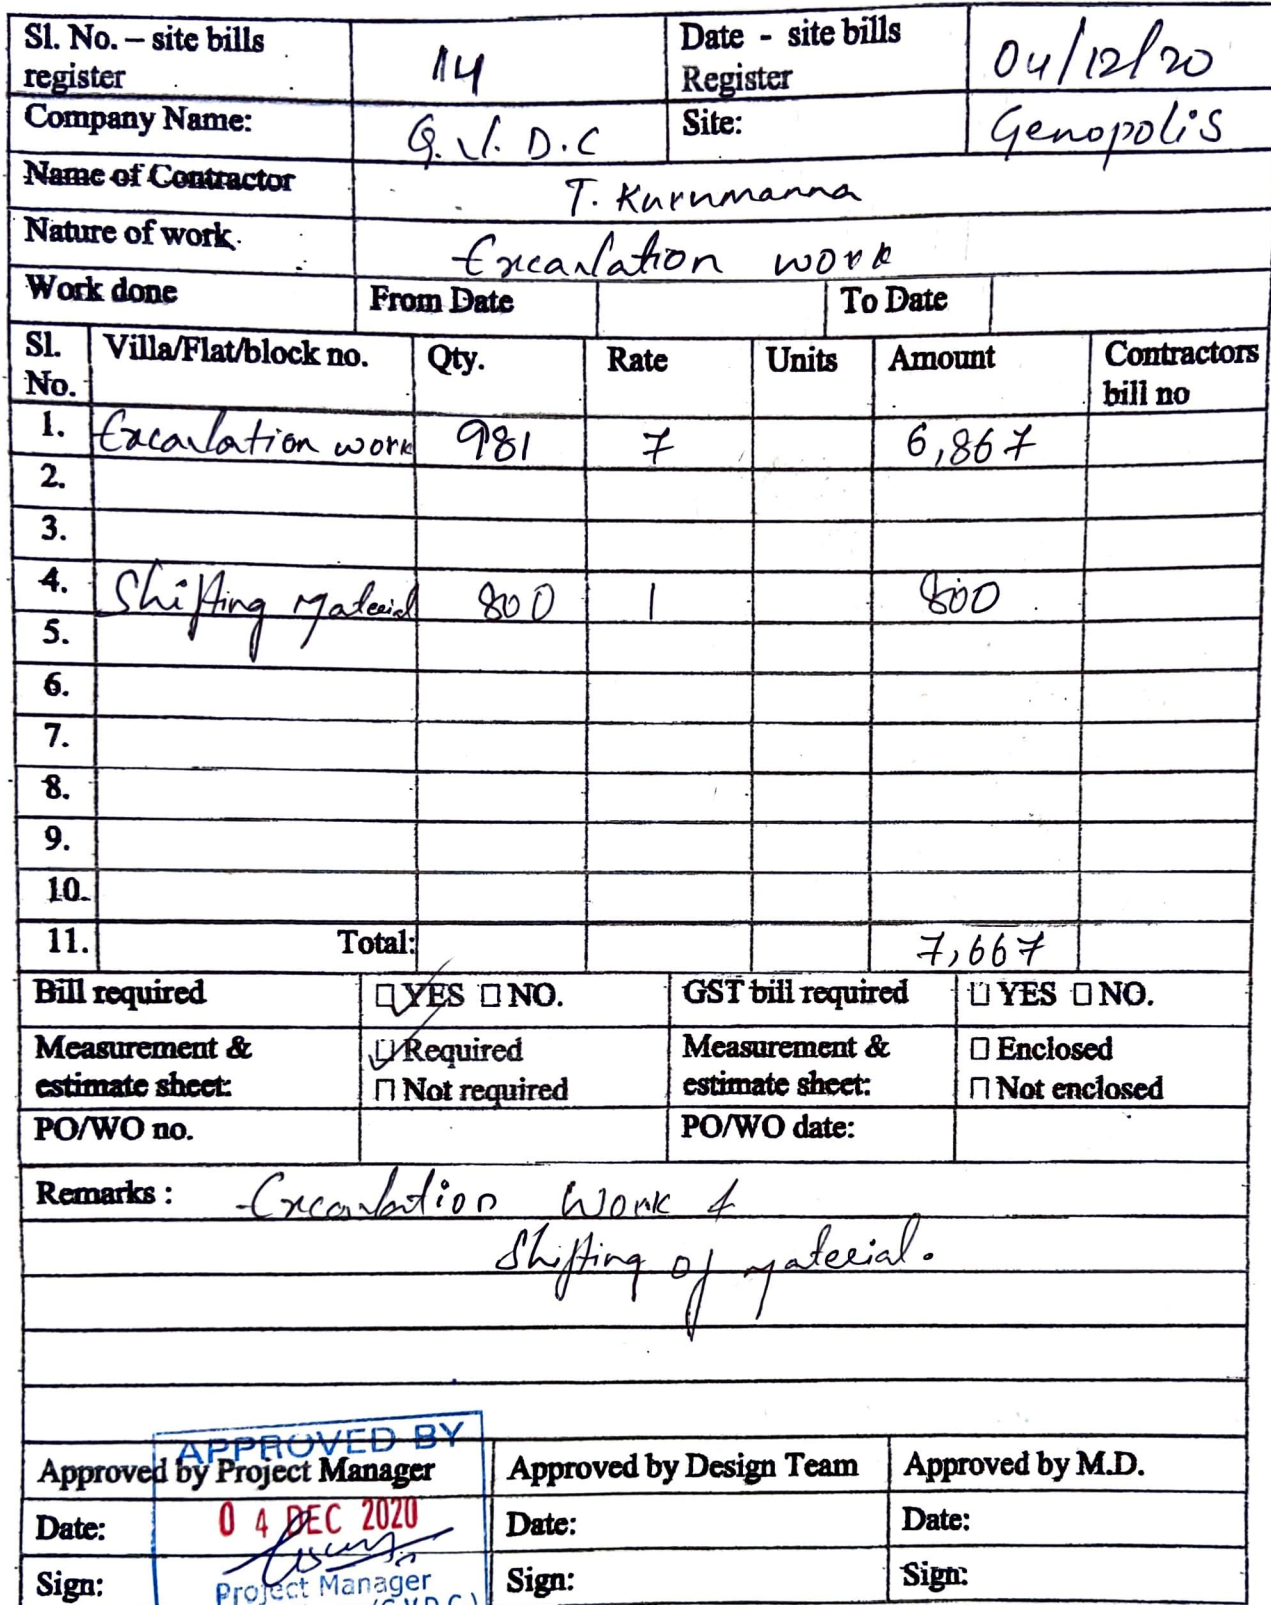 Sl. No. – site bills register 14 Date - site bills Register 04/12/20
Company Name: G.V.D.C Site: Genopolis
Name of Contractor T. Kurumanna
Nature of work. Excavation work
Work done From Date To Date
Sl. No. Villa/Flat/block no. Qty. Rate Units Amount Contractors bill no
1. Excavation work 981 7 6,867
2.
3.
4. Shifting Material 800 1 800
5.
6.
7.
8.
9.
10.
11. Total: 7,667
Bill required ☑ YES ☐ NO. GST bill required ☐ YES ☐ NO.
Measurement & estimate sheet: ☑ Required ☐ Not required Measurement & estimate sheet: ☐ Enclosed ☐ Not enclosed
PO/WO no. PO/WO date:
Remarks : Excavation Work &
Shifting of material.
APPROVED BY
Approved by Project Manager Approved by Design Team Approved by M.D.
Date: 04 DEC 2020 Date: Date:
Sign: Project Manager (G.V.D.C.) Sign: Sign: